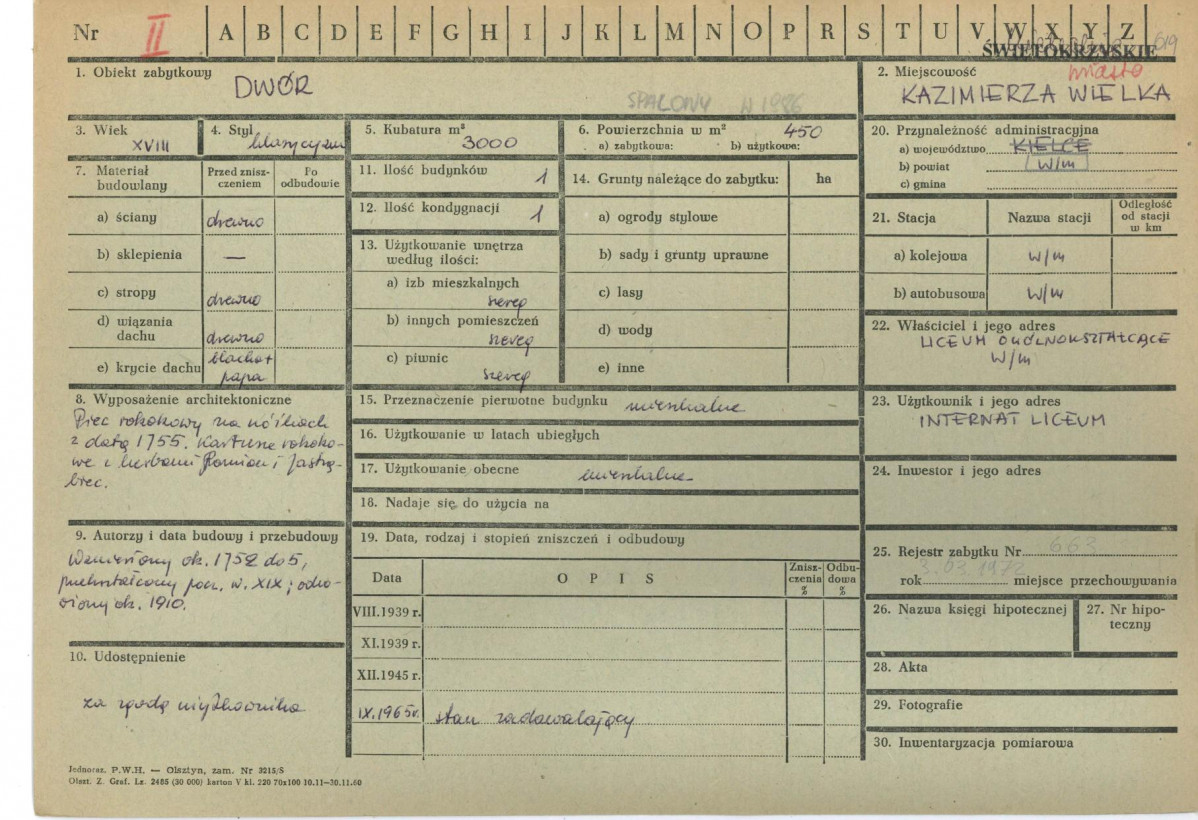 Nr II A B C D E F G H I J K L M N O P R S T U V W X Y Z
ŚWIĘTOKRZYSKIE 619
1. Obiekt zabytkowy
DWÓR
SPALONY W 1986
2. Miejscowość
miasto
KAZIMIERZA WIELKA
3. Wiek
XVIII
4. Styl
klasycyzm
5. Kubatura m³
3000
6. Powierzchnia w m² 450
a) zabytkowa: b) użytkowa:
20. Przynależność administracyjna
a) województwo KIELCE
b) powiat W/M
c) gmina
7. Materiał budowlany
Przed znisz-
czeniem
Po
odbudowie
a) ściany drewno
b) sklepienia —
c) stropy drewno
d) wiązania
dachu drewno
e) krycie dachu blacha +
papa
11. Ilość budynków 1
12. Ilość kondygnacji 1
13. Użytkowanie wnętrza
według ilości:
a) izb mieszkalnych
szereg
b) innych pomieszczeń
szereg
c) piwnic
szereg
14. Grunty należące do zabytku: ha
a) ogrody stylowe
b) sady i grunty uprawne
c) lasy
d) wody
e) inne
21. Stacja Nazwa stacji
Odległość
od stacji
w km
a) kolejowa W/M
b) autobusowa W/M
22. Właściciel i jego adres
LICEUM OGÓLNOKSZTAŁCĄCE
W/M
8. Wyposażenie architektoniczne
Piec rokokowy na nóżkach
z datą 1755. Kartusze rokoko-
we z herbami Pomian i Jastrzę-
biec.
15. Przeznaczenie pierwotne budynku mieszkalne
16. Użytkowanie w latach ubiegłych
17. Użytkowanie obecne mieszkalne
18. Nadaje się do użycia na
23. Użytkownik i jego adres
INTERNAT LICEUM
24. Inwestor i jego adres
9. Autorzy i data budowy i przebudowy
Wzniesiony ok. 1752 do 5,
przekształcony pocz. w. XIX; odno-
wiony ok. 1910.
10. Udostępnienie
za zgodą użytkownika
19. Data, rodzaj i stopień zniszczeń i odbudowy
Data OPIS
Znisz-
czenia
%
Odbu-
dowa
%
VIII.1939 r.
XI.1939 r.
XII.1945 r.
IX.1965r. stan zadowalający
25. Rejestr zabytku Nr 663
3.03.1972
rok miejsce przechowywania
26. Nazwa księgi hipotecznej
27. Nr hipo-
teczny
28. Akta
29. Fotografie
30. Inwentaryzacja pomiarowa
Jednoraz. P.W.H. — Olsztyn, zam. Nr 3215/S
Olszt. Z. Graf. Lz. 2485 (30 000) karton V kl. 220 70x100 10.11—30.11.60